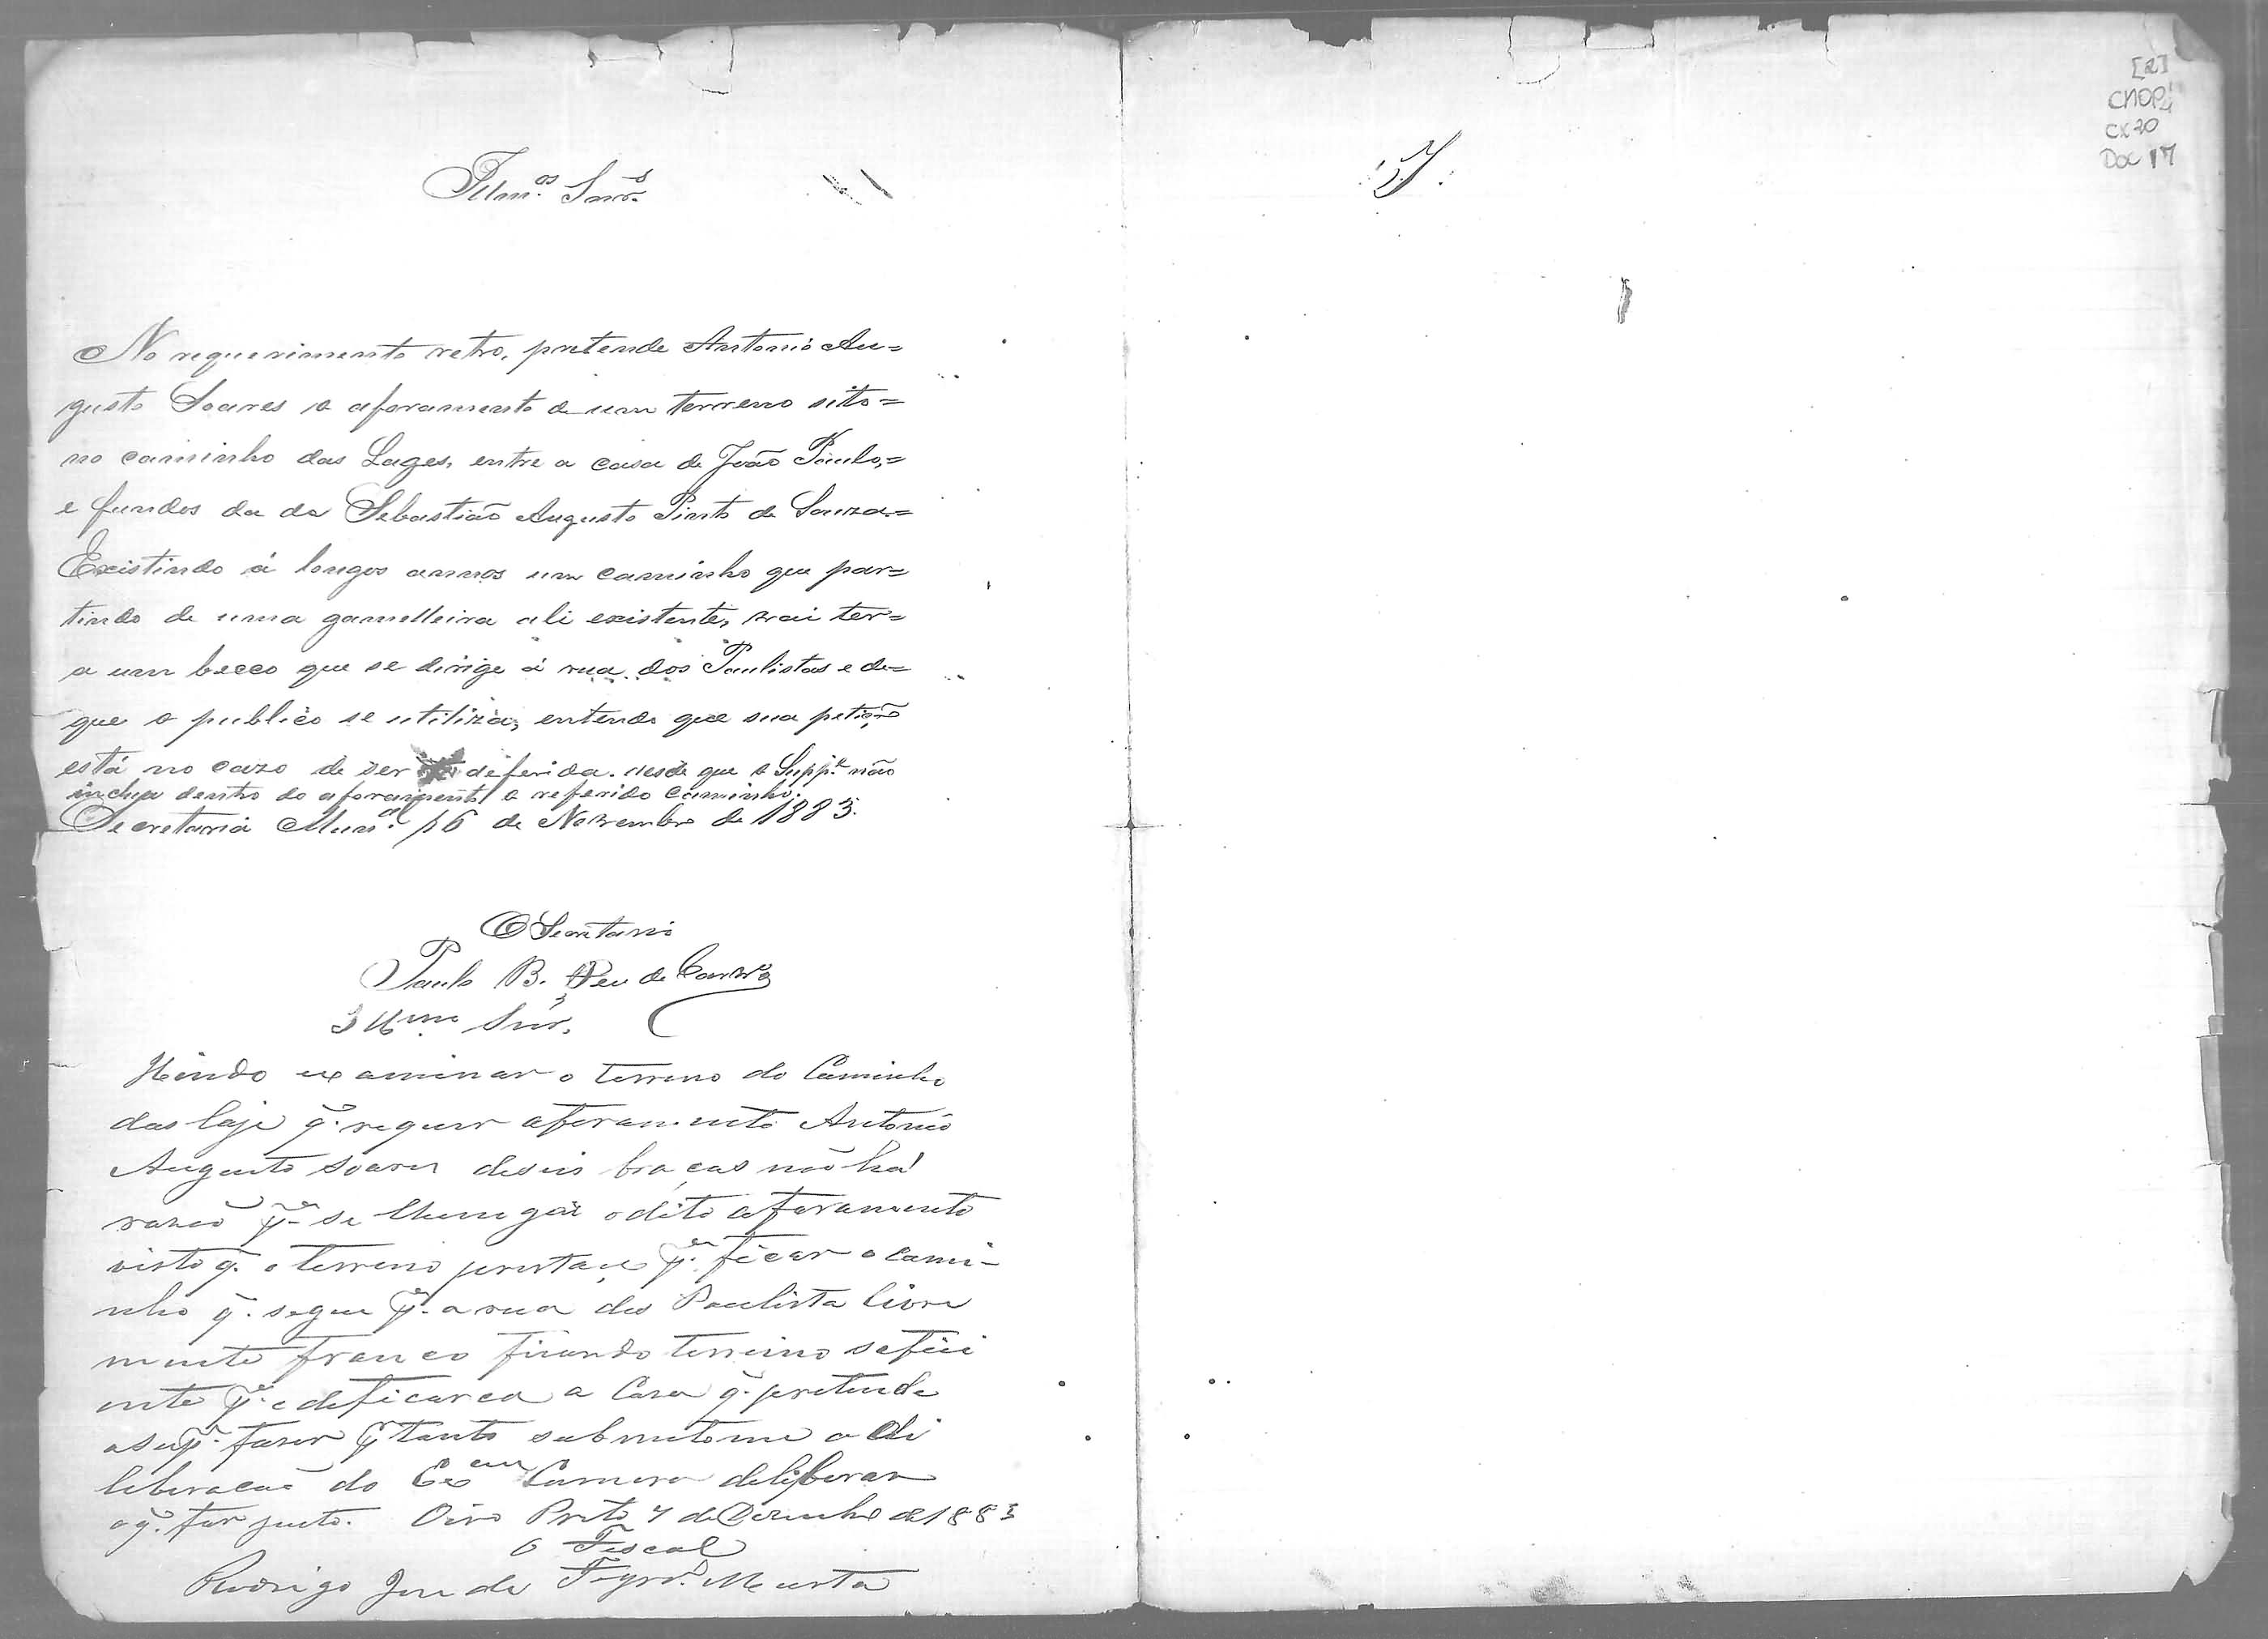 Illm.os Snr.s
No requerimento retro, pretende Antonio Au=
gusto Soares o aforamento de um terreno sito=
no caminho das Lages, entre a casa de João Paulo,=
e fundos da de Sebastião Augusto Pinto de Souza.=
Existindo á longos annos um caminho que par=
tindo de uma gamelleira ali existente, vai ter=
a um becco que se dirige á rua dos Paulistas e de=
que o publico se utiliza, entendo que sua petição
está no cazo de ser deferida. desde que o Supp.e não
inclua dentro do aforamento o referido caminho.
Secretaria Mun.al 16 de Novembro de 1883.
O Secretario
Paulo B. de
Illmo Snr.
Hindo examinar o terreno do Caminho
das laje q. requer aforamento Antonio
Augusto Soares deseis braças não há
razão p.a se lhe negar o dito aforamento
visto q. o terreno p.a ficar o cami-
nho q. segue p.a a rua dos Paulista livre
mente franco ficando terreino sefici
ente p.a edeficar ca a Casa q. pretende
o sup.e fazer p tanto submetome a di
liberacaõ da Ex.ma Camara deliberar
o q. for justo. Oiro Preto 7 de Dezembro de 1883
O Fiscal
Rodrigo Jose de Murta
[2]
CMOP
CX 20
Doc 17